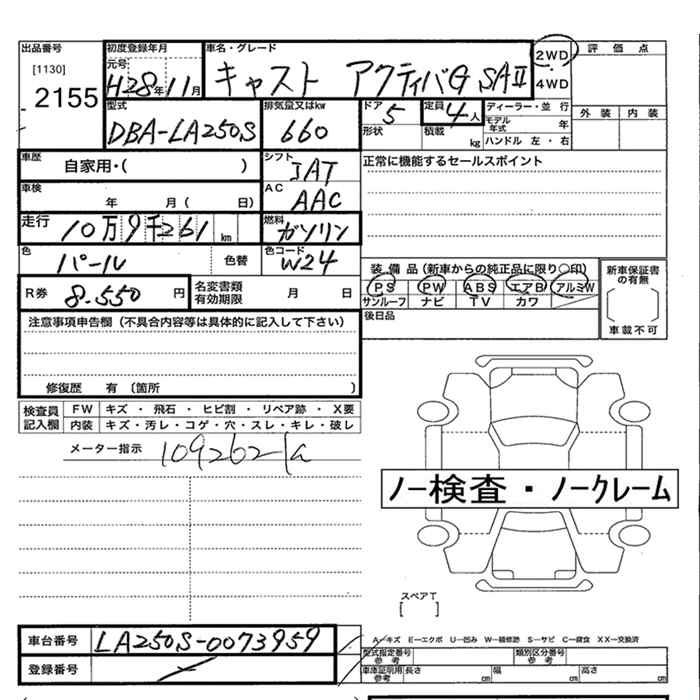 出品番号 初度登録年月 車名・グレード 2WD 評価点
[1130] 元号 キャスト アクティバG SAⅡ ・
2155 H28年11月 4WD
型式 排気量又はkw ドア 定員 ディーラー・並行 外装 内装
DBA-LA250S 660 5 4人 モデル年式 年
形状 積載 kg ハンドル 左・右
車歴 自家用・( ) シフト IAT 正常に機能するセールスポイント
車検 年 月( 日) AC AAC
走行 10万9千261km 燃料 ガソリン
色 パール 色替 色コード W24
装備品(新車からの純正品に限り〇印) 新車保証書の有無
R券 8.550円 名変書類有効期限 月 日 PS PW ABS エアB アルミW
サンルーフ ナビ TV カワ
注意事項申告欄(不具合内容等は具体的に記入して下さい) 後日品 車載不可
修復歴 有〔箇所 〕
検査員記入欄 FW キズ・飛石・ヒビ割・リペア跡・X要
内装 キズ・汚レ・コゲ・穴・スレ・キレ・破レ
メーター指示 109262
ノー検査・ノークレーム
スペアT
[ ]
車台番号 LA250S-0073959
A-キズ E-エクボ U-凹み W-補修跡 S-サビ C-腐食 XX-交換済
登録番号
型式指定番号 参考 類別区分番号 参考
車庫証明用 参考 長さ cm 幅 cm 高さ cm